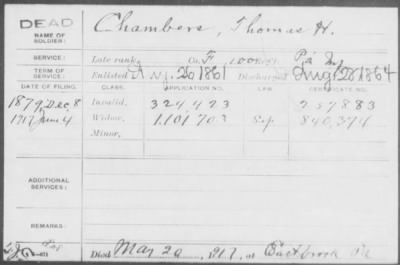 DEAD
NAME OF SOLDIER:
Chambers, Thomas H.
SERVICE:
Late rank, Co. F, 100 Reg't Pa Inf
TERM OF SERVICE:
Enlisted Aug 26 1861 Discharged Aug 28 1864
DATE OF FILING. CLASS. APPLICATION NO. LAW. CERTIFICATE NO.
1879, Dec, 8 Invalid, 324,423 257883
1917 June 4 Widow, 1,101,703 Sep. 840,374
Minor,
ADDITIONAL SERVICES:
REMARKS:
Died May 20, 1917, at Eastbrook Pa